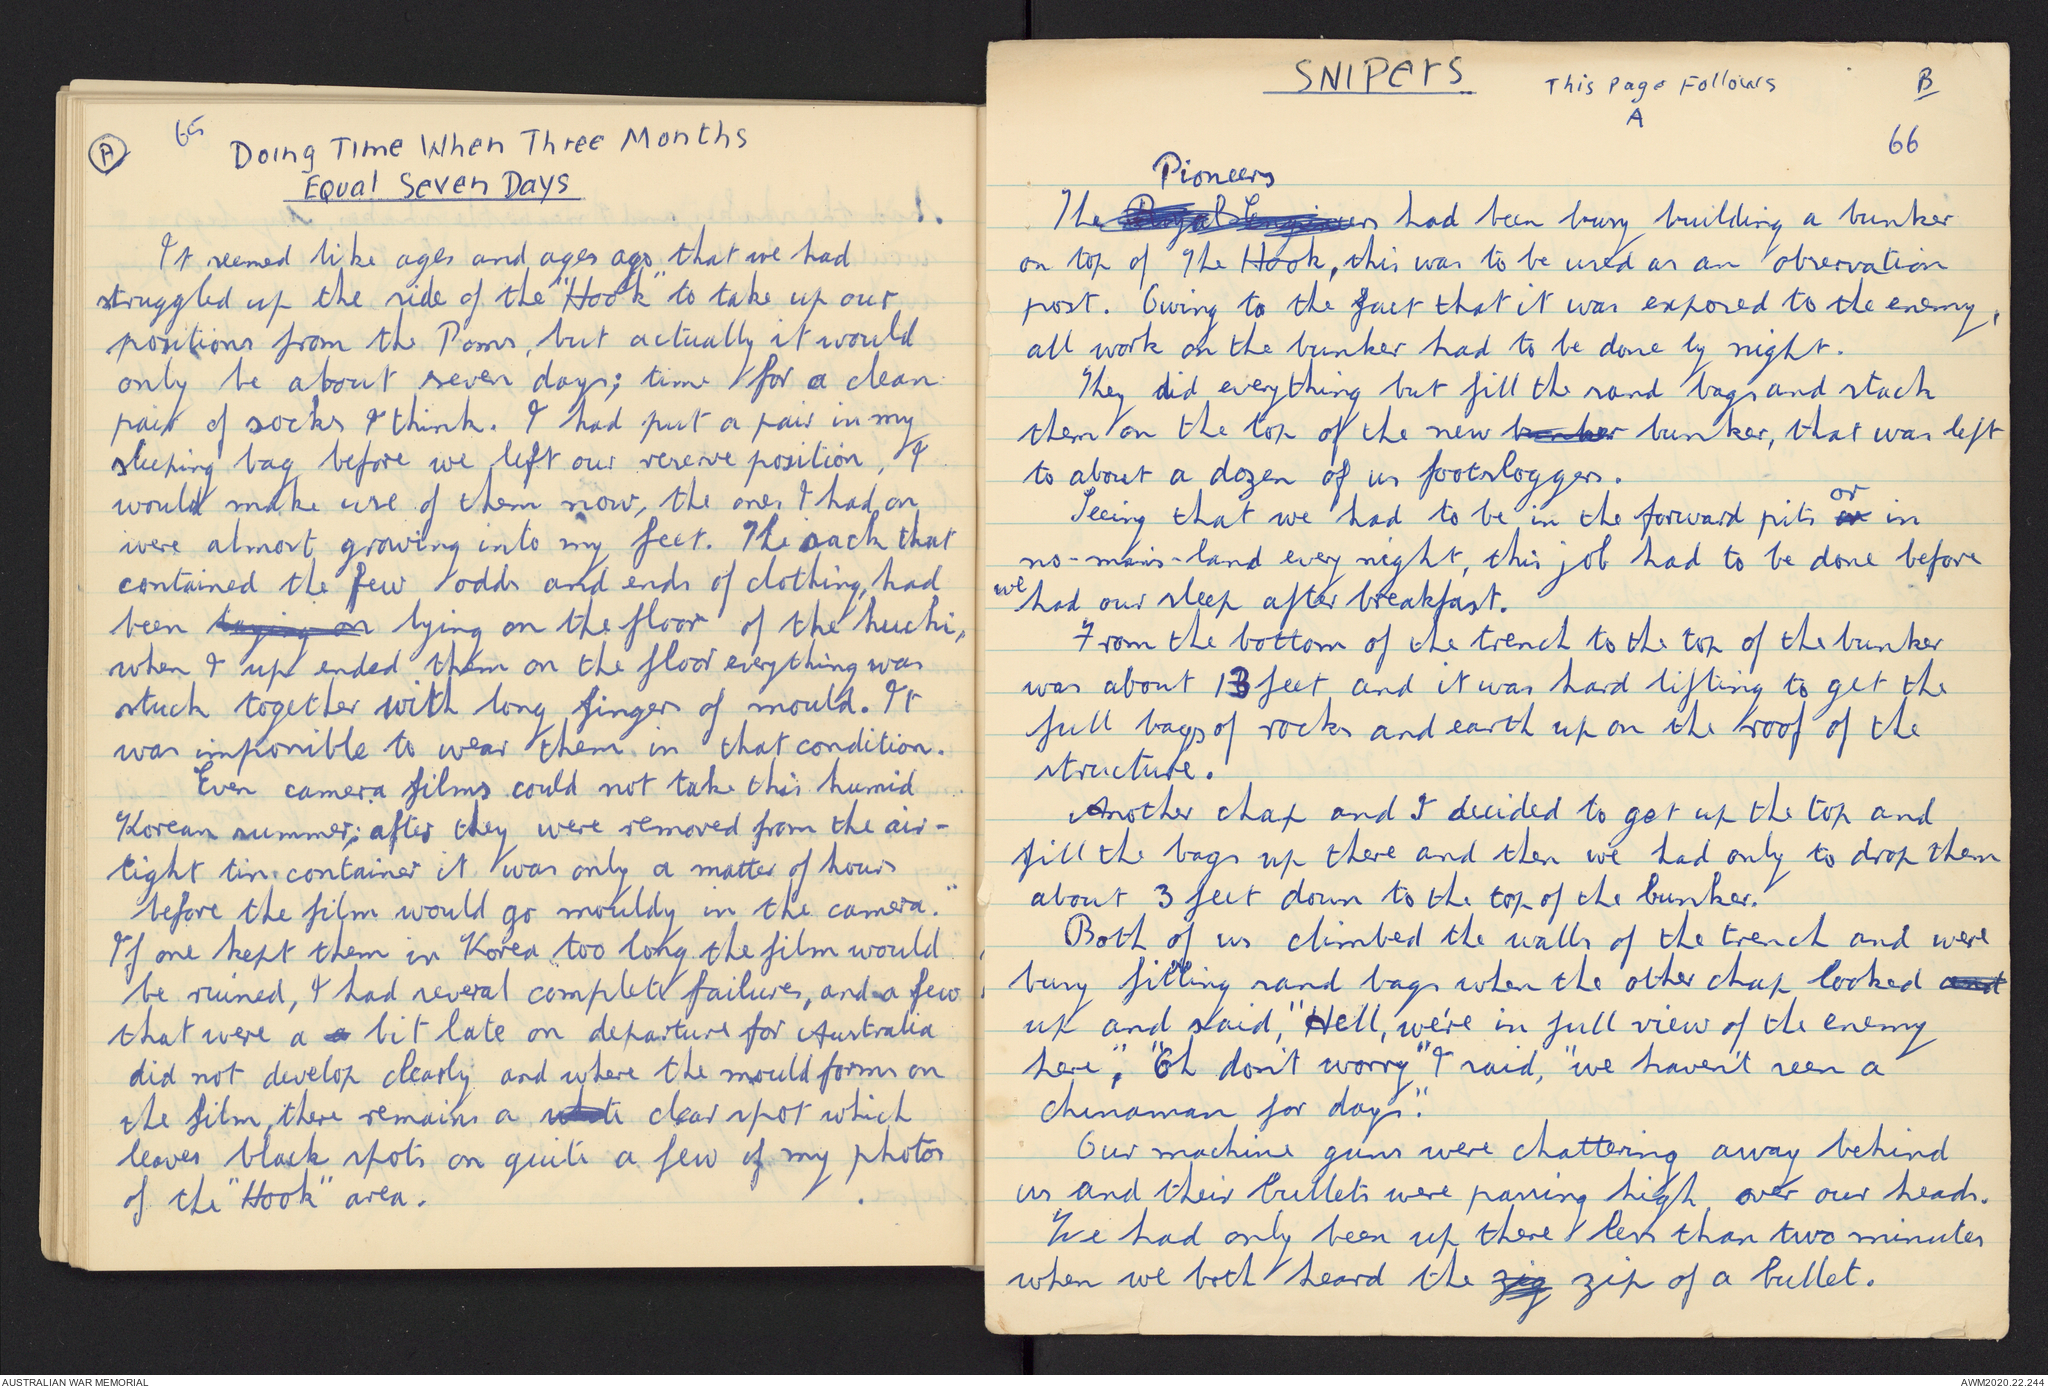 A
65
Doing Time When Three Months
Equal Seven Days
1.
It seemed like ages and ages ago that we had
struggled up the side of the "Hook" to take up our
positions from the Poms, but actually it would
only be about seven days; time for a clean
pair of socks I think. I had put a pair in my
sleeping bag before we left our reserve position, I
would make use of them now, the ones I had on
were almost growing into my feet. The sack that
contained the few odds and ends of clothing, had
been laying on lying on the floor of the huchi,
when I up ended them on the floor everything was
stuck together with long fingers of mould. It
was impossible to wear them in that condition.
Even camera films could not take this humid
Korean summer; after they were removed from the air-
tight tin container it was only a matter of hours
before the film would go mouldy in the camera."
If one kept them in Korea too long the film would
be ruined, I had several complete failures, and a few
that were a a bit late on departure for Australia
did not develop clearly and where the mould forms on
the film, there remains a white clear spot which
leaves black spots on quite a few of my photos
of the "Hook" area.
SNIPERS
This Page Follows
A
B
66
Pioneers
The Royal Engineers had been busy building a bunker
on top of The Hook, this was to be used as an observation
post. Owing to the fact that it was exposed to the enemy,
all work on the bunker had to be done by night.
They did everything but fill the sand bags and stack
them on the top of the new bunker bunker, that was left
to about a dozen of us footsloggers.
or
Seeing that we had to be in the forward pits or in
no-mans-land every night, this job had to be done before
we had our sleep after breakfast.
From the bottom of the trench to the top of the bunker
was about 13 feet and it was hard lifting to get the
full bags of rocks and earth up on the roof of the
structure.
Another chap and I decided to get up the top and
fill the bags up there and then we had only to drop them
about 3 feet down to the top of the bunker.
Both of us climbed the walls of the trench and were
busy filling sand bags when the other chap looked and
up and said, "Hell, we're in full view of the enemy
here", "Oh don't worry" I said, "we haven't seen a
chinaman for days".
Our machine guns were chattering away behind
us and their bullets were passing high over our heads.
We had only been up there less than two minutes
when we both heard the zig zip of a bullet.
AUSTRALIAN WAR MEMORIAL
AWM2020.22.244